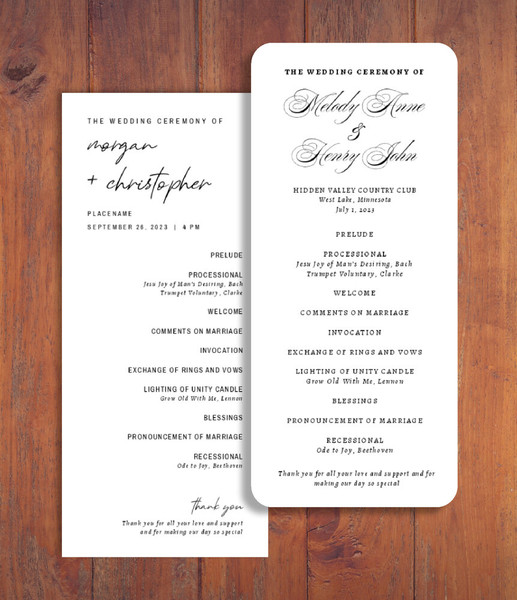 THE WEDDING CEREMONY OF
morgan
+ christopher
PLACENAME
SEPTEMBER 26, 2023 | 4 PM
PRELUDE
PROCESSIONAL
Jesu Joy of Man's Desiring, Bach
Trumpet Voluntary, Clarke
WELCOME
COMMENTS ON MARRIAGE
INVOCATION
EXCHANGE OF RINGS AND VOWS
LIGHTING OF UNITY CANDLE
Grow Old With Me, Lennon
BLESSINGS
PRONOUNCEMENT OF MARRIAGE
RECESSIONAL
Ode to Joy, Beethoven
thank you
Thank you for all your love and support
and for making our day so special
THE WEDDING CEREMONY OF
Melody Anne
&
Henry John
HIDDEN VALLEY COUNTRY CLUB
West Lake, Minnesota
July 1, 2023
PRELUDE
PROCESSIONAL
Jesu Joy of Man's Desiring, Bach
Trumpet Voluntary, Clarke
WELCOME
COMMENTS ON MARRIAGE
INVOCATION
EXCHANGE OF RINGS AND VOWS
LIGHTING OF UNITY CANDLE
Grow Old With Me, Lennon
BLESSINGS
PRONOUNCEMENT OF MARRIAGE
RECESSIONAL
Ode to Joy, Beethoven
Thank you for all your love and support and for
making our day so special